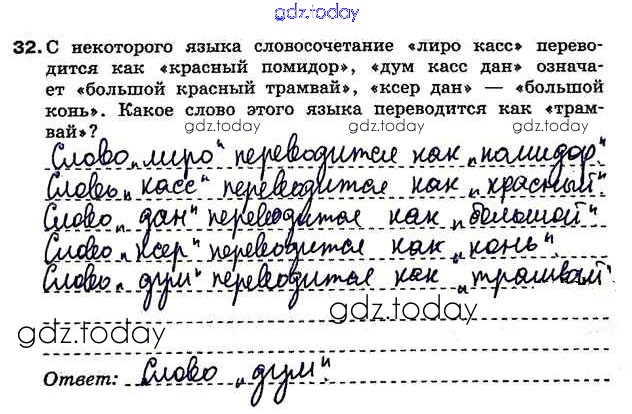 gdz.today
32. С некоторого языка словосочетание «лиро касс» перево-
дится как «красный помидор», «дум касс дан» означа-
ет «большой красный трамвай», «ксер дан» — «большой
конь». Какое слово этого языка переводится как «трам-
вай»?
gdz.today gdz.today gdz.today
Слово „лиро" переводится как „помидор".
Слово „касс" переводится как „красный".
Слово „дан" переводится как „большой".
Слово „ксер" переводится как „конь".
Слово „дум" переводится как „трамвай"
gdz.today gdz.today
gdz.today
Ответ: Слово „дум".